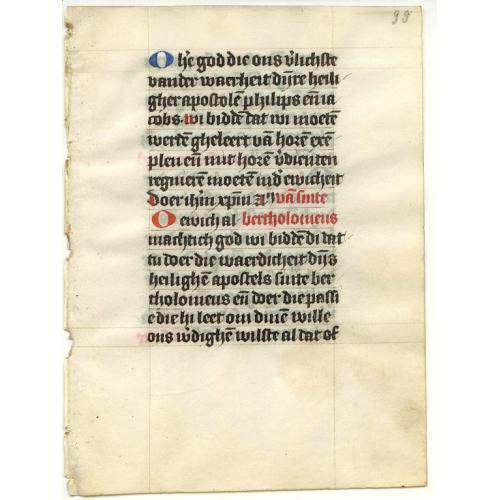 99
O he god die ons v̄lichste
vander waerheit dijre heili
gher apostolē philips eñ ia
cobs. wi biddē dat wi moetē
werdē gheleert vā horē exē
plen eñ mit horē v̄dienten
regnierē moetē in d̄ ewicheit
doer ihm̄ xpm̄ vā sinte
O ewich al bertholomeus
machtich god wi biddē di dat
tu doer die waerdicheit dijs
heilighē apostels sinte ber
tholomeus eñ doer die passi
e die hi leet om dinē wille
ons v̄dighē wilste al dat of